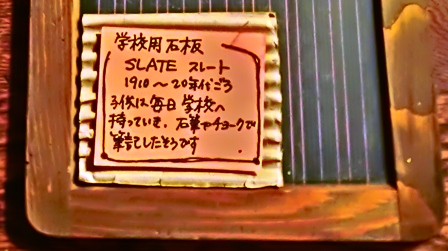 学校用石板
SLATE スレート
1910〜20年代ごろ
子供は毎日学校へ
持っていき、石筆やチョークで
筆記したそうです